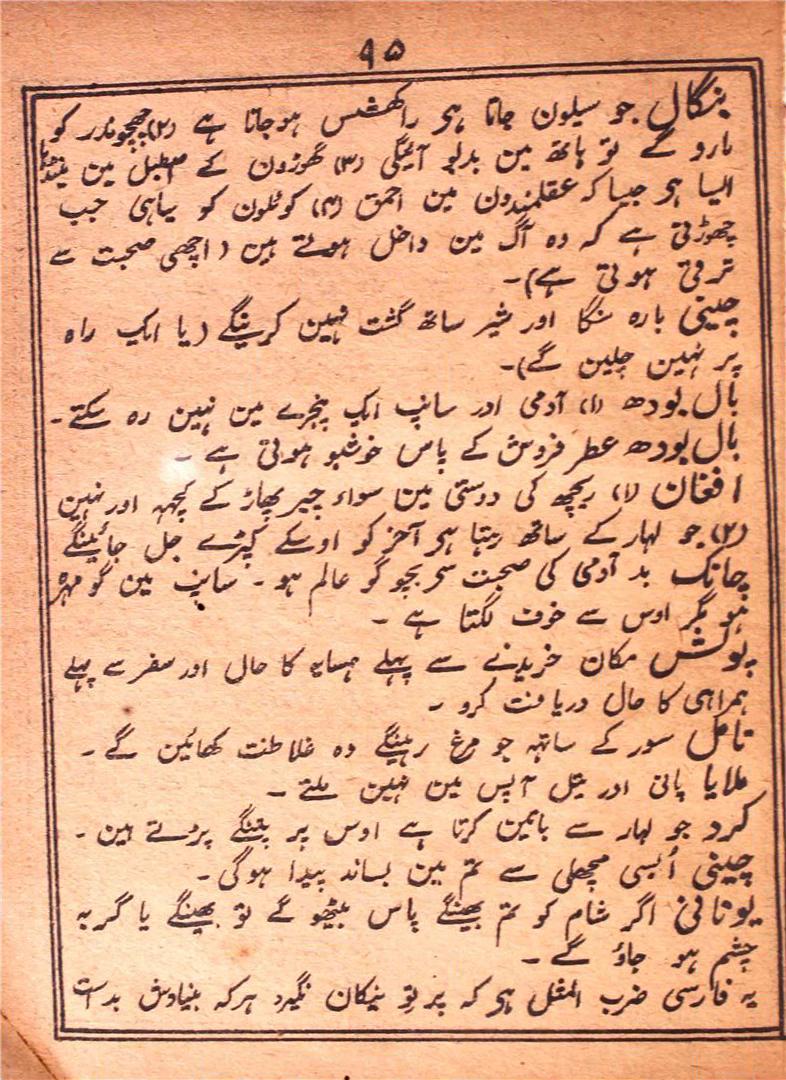 ۹۵
بنگال جو سیلون جاتا ہی راکھشس ہوجاتا ہے (۲) چھچوندر کو
مارو گے تو ہاتھ مین بدبو آئیگی (۳) گھوڑون کے اصطبل مین مینڈھا
ایسا ہی جیسا کہ عقلمندون مین احمق (۴) کوئلون کو سیاہی جب
چھوڑتی ہے کہ وہ آگ مین داخل ہوتے ہین (اچھی صحبت سے
ترقی ہوتی ہے)۔
چینی بارہ سنگا اور شیر ساتھ گشت نہین کرینگے (یا ایک راہ
پر نہین چلین گے)۔
بال بودھ (۱) آدمی اور سانپ ایک پنجرے مین نہین رہ سکتے۔
بال بودھ عطر فروش کے پاس خوشبو ہوتی ہے۔
افغان (۱) ریچھ کی دوستی مین سواء چیر پھاڑ کے کچہہ اور نہین
(۲) جو لہار کے ساتھ رہتا ہی آخر کو اوسکے کپڑے جل جائینگے
چانک بد آدمی کی صحبت سی بچو گو عالم ہو۔ سانپ مین گو مہرہ
ہو مگر اوس سے خوف لگتا ہے۔
پولش مکان خریدنے سے پہلے ہمسایہ کا حال اور سفر سے پہلے
ہمراہی کا حال دریافت کرو۔
تامل سور کے ساتہہ جو مرغ رہینگے وہ غلاظت کھائین گے۔
ملایا پانی اور تیل آپس مین نہین ملتے۔
کرد جو لہار سے باتین کرتا ہے اوس پر پتنگے پڑتے ہین۔
چینی اُبسی مچھلی سے تم مین بساند پیدا ہوگی۔
یونانی اگر شام کو تم بھینگے پاس بیٹھو گے تو بھینگے یا گربہ
چشم ہو جاؤ گے۔
یہ فارسی ضرب المثل ہی کہ پرتوِ نیکان نگیرد ہرکہ بنیادش بدست